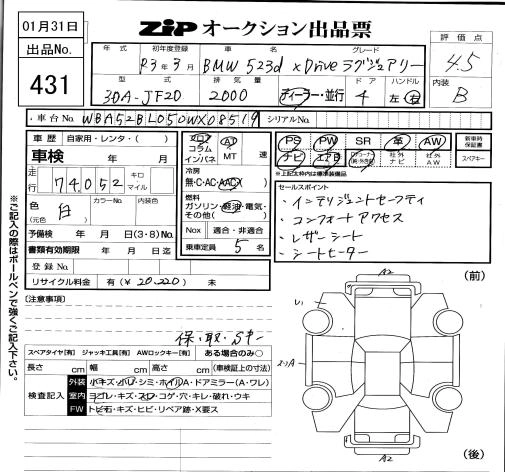 01月31日
ZIP オークション出品票
出品No.
431
年式 初年度登録 車名 グレード
R3年3月 BMW 523d xDrive ラグジュアリー
評価点
4.5
型式 排気量 ドア ハンドル
3DA-JF20 2000 ディーラー・並行 4 左 右
内装
B
車台No. WBA52BL050WX08519 シリアルNo.
車歴 自家用・レンタ・( )
車検 年 月
走行 74,052 キロ マイル
色 (元色) 白 カラーNo. 内装色
予備検 年 月 日(3・8)No.
書類有効期限 年 月 日
登録No.
リサイクル料金 有(¥20,220) 未
フロア AT
コラム
インパネ MT 速
冷房
無・C・AC・AAC
燃料
ガソリン・軽油・電気・
その他( )
Nox 適合・非適合
乗車定員 5 名
PS PW SR 革 AW 新車時保証書
ナビ エアB 社外ナビ 社外AW スペアキー
※上記太枠内は標準装備品
セールスポイント
・インテリジェントセーフティ
・コンフォートアクセス
・レザーシート
・シートヒーター
※ご記入の際はボールペンで強くご記入下さい。
[注意事項]
保・取・Sキー
スペアタイヤ[有] ジャッキ工具[有] AWロックキー[有] ある場合のみ○
長さ cm 幅 cm 高さ cm (車検証上の寸法)
検査記入
外装 小キズ・小ハリ・シミ・ホイルA・ドアミラー(A・ワレ)
室内 ヨゴレ・キズ・スレ・コゲ・穴・キレ・破れ・ウキ
FW トビ石・キズ・ヒビ・リペア跡・X要ス
A2
(前)
A2
(後)